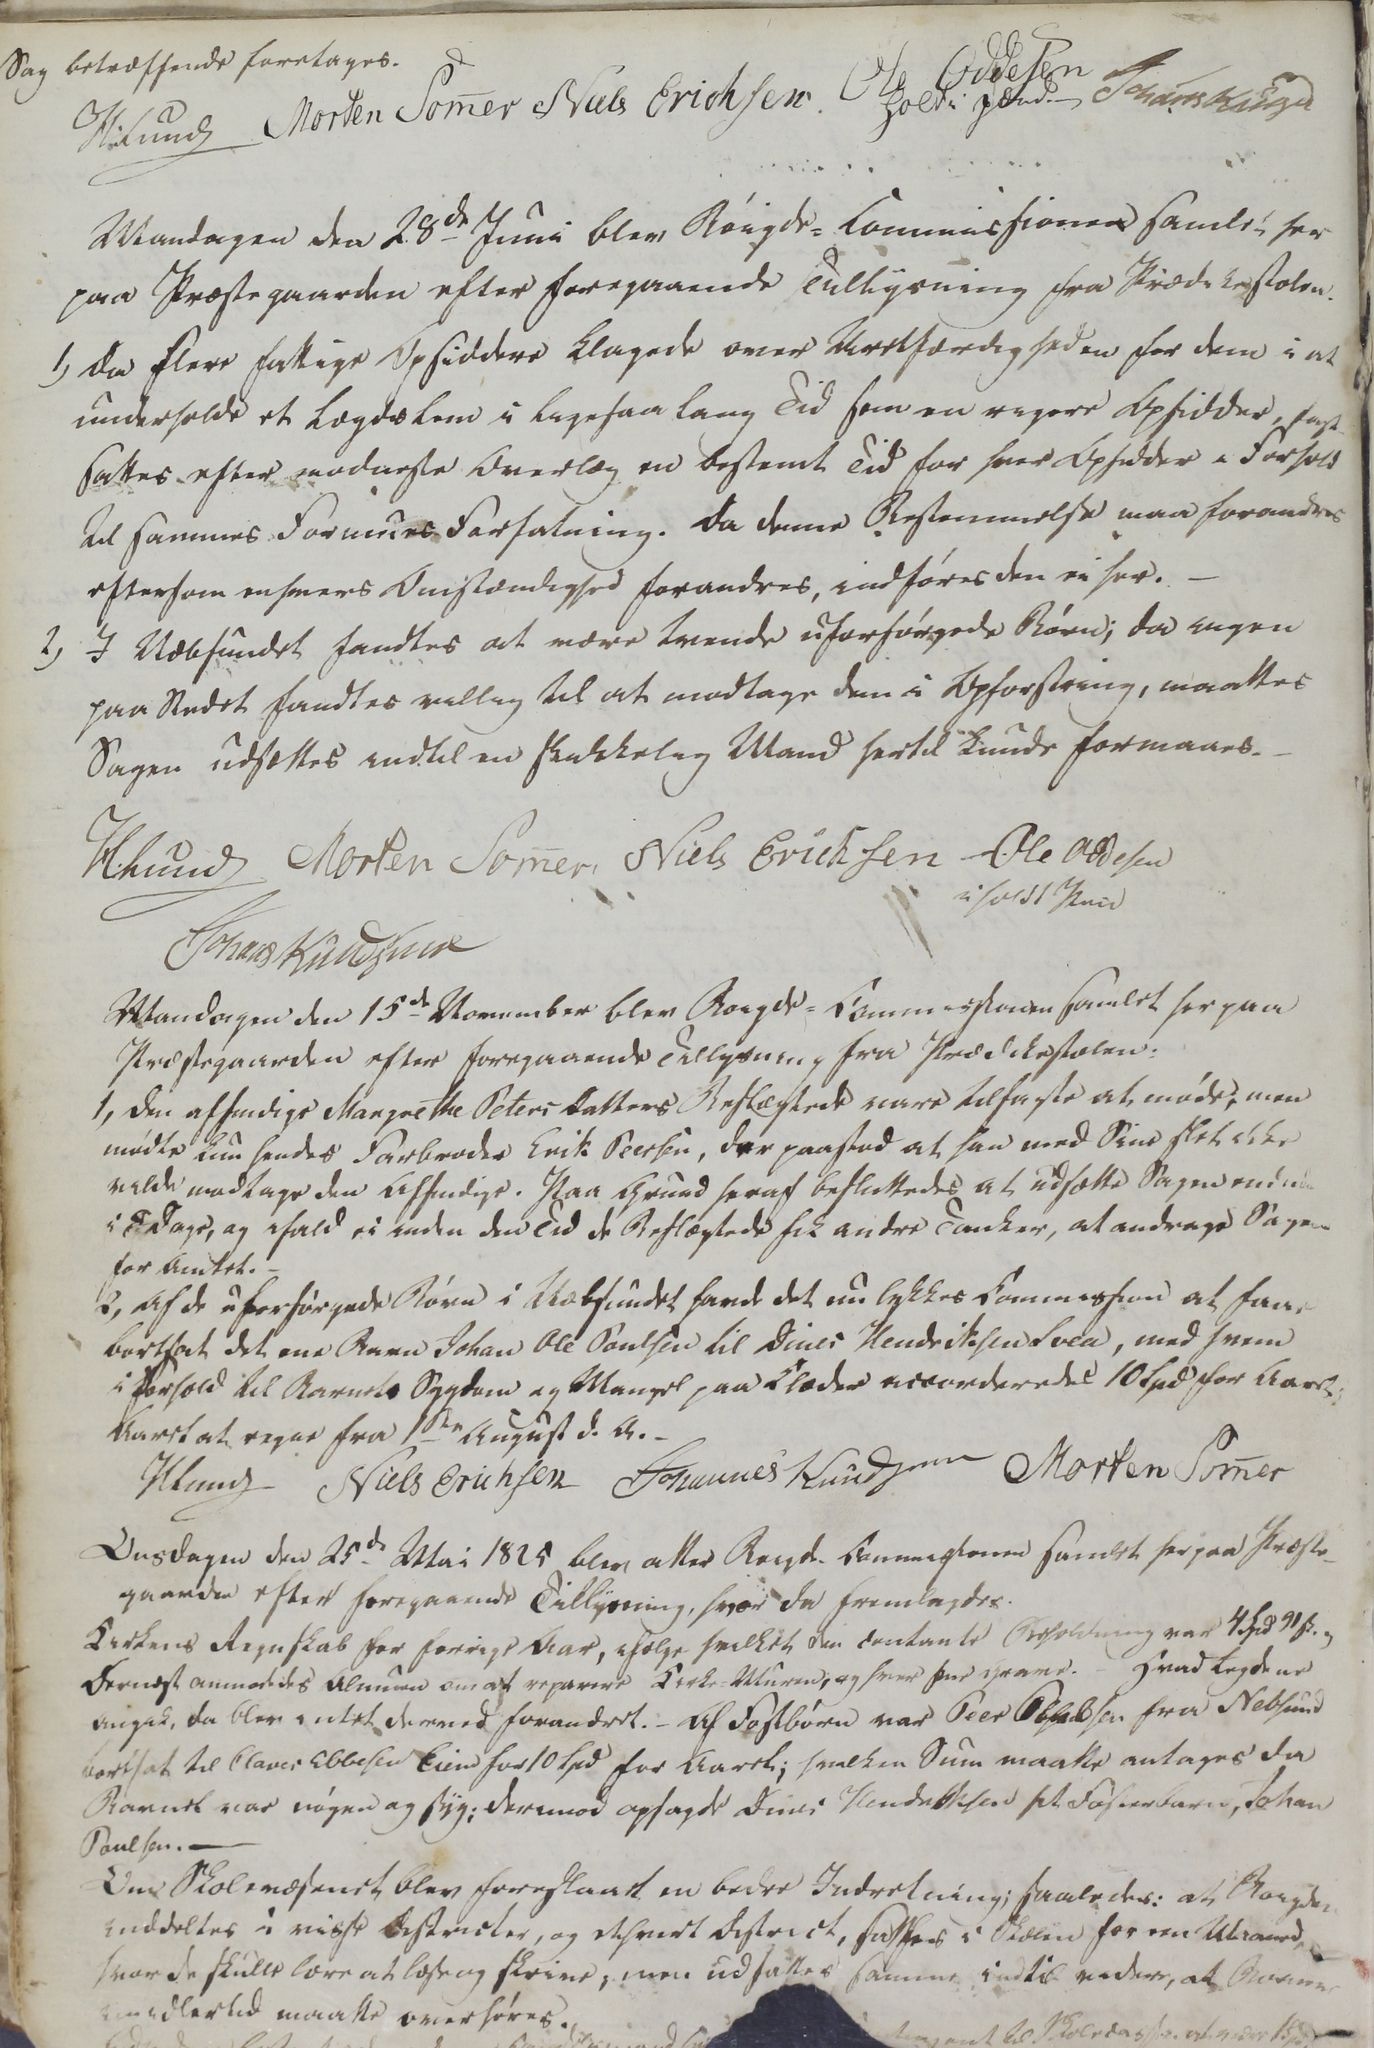 Sag betræffende foretages.
HLund Morten Somer Niels Erichsen Ole Oddesen
holdt i Pend
Mandagen den 28de Juni blev Böigde-Commissionen samlet her
paa Præstegaarden efter foregaaende Tillysning fra Prædikestolen.
1) Da flere fattige Opsiddere klagede over Uretfærdigheden for dem i at
underholde et Lægdslem i ligesaa lang Tid som en rigere Opsidder, fast-
sattes efter nodneste Overlæg en bestemt Tid for hver Opsidder i Forhold
til sammes Formues Forfatning. Da denne Bestemmelse maa forandres
eftersom enhvers Omstændighed forandres, indføres den ei her. -
2) I Næbsundet fandtes at være tvende uforsørgede Börn; da ingen
paa Stedet fandtes villig til at modtage dem i Opfostring, maattes
Sagen udsættes indtil en skikkelig Mand hertil kunde formaaes. -
HLund Morten Somer Niels Erichsen Ole Oddesen
i holdt Pen
Johans Knudsen
Mandagen den 15de November blev Boigde-Commissionen samlet her paa
Præstegaarden efter foregaaende Tillysning fra Prædikestolen:
1, Den afsindige Margrethe Peters Datters Beslægtede vare tilsagte at møde, men
mødte kun hendes Farbroder Erik Peersen, der paastod at han med Sine slet ikke
vilde modtage den Afsindige. Paa Grund heraf besluttedes at udsætte Sagen endnu
i Dage, og ifald ei inden den Tid de Beslægtede fik andre Tanker, at andrage Sagen
for Amtet. -
2, Af de uforsørgede Börn i Næbsundet havde det nu lykkes Commission at faae
bortsat det ene Barn Johan Ole Poulsen til Dines Hendriksen Svea, med hvem
i Forhold til Barnets Sygdom og Mangel paa Klæder accorderedes 10 Spd for Aaret;
Aaret at regne fra 1ste August d. A. -
HLund Niels Erichsen Johannes Knudsen Morten Somer
Onsdagen den 25de Mai 1825 blev atter Boigde-Commissionen samlet her paa Præste-
gaarden efter foregaaende Tillysning, hvor da fremlagdes.
Kirkens Regnskab for forrige Aar, ifølge hvilket den contante Beholdning var 4 Spd 91 s.
Dernæst anmodedes Almuen om at reparere Kirke-Muren, og hver sine Grave. - Hvad Legderne
angik, da blev intet dermed forandret. - Af Fostbörn var Peer fra Nebsund
bortsat til Claus Abbesen for 10 Spd for Aaret; hvilken Sum maatte antages da
Barnet var nøgen og syg; dermod opsagde Dines Hendriksen sit Fosterbarn, Johan
Poulsen. -
Om Skolevæsenet blev foreslaaet en bedre Indretning; saaledes: at Boigden
inddeltes i visse Districter, og ethvert District, i Skolen for een Maaned,
hvor de skulle lære at læse og skrive, men udsattes samme indtil videre, at
imidlertid maatte overhøres.